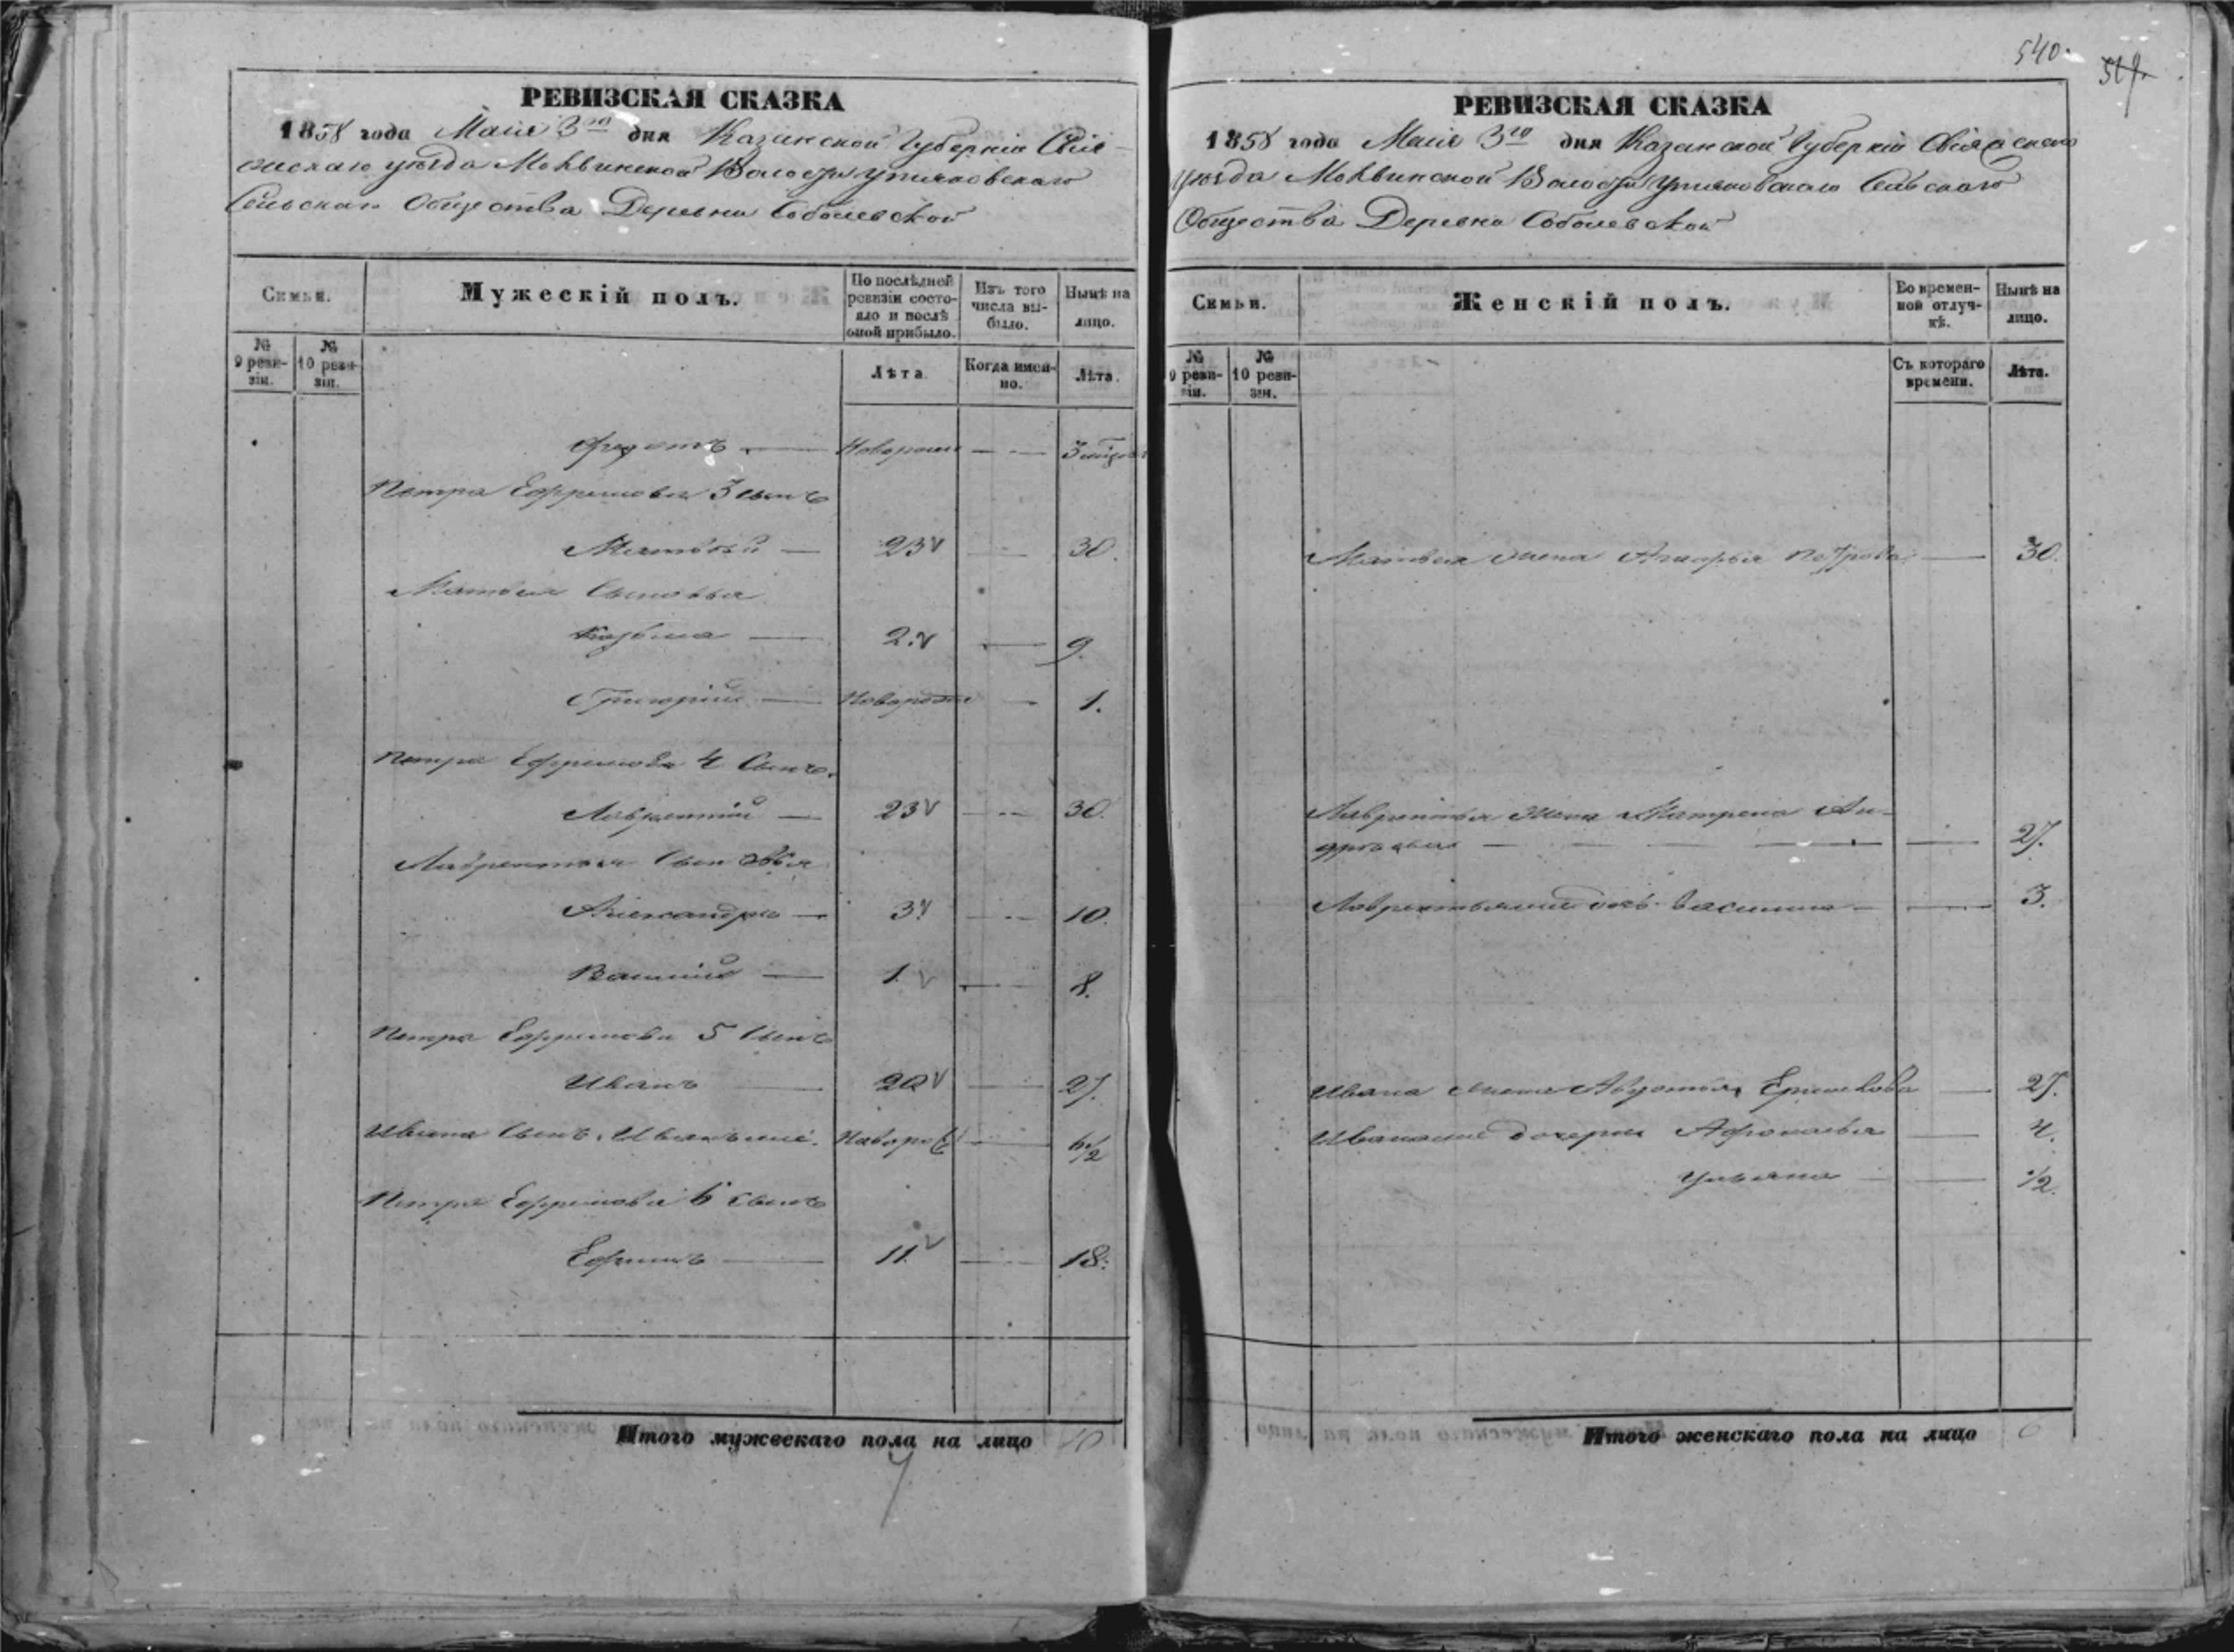 540.
519.
РЕВИЗСКАЯ СКАЗКА
1858 года Маія 3го дня Казанской Губерніи Свія-
жскаго уѣзда Моквинской Волости Утяковскаго
Сельскаго Общества Деревни Соболевской
Семьи.
Мужескій полъ.
По послѣдней ревизіи состояло и послѣ оной прибыло.
Изъ того числа выбыло.
Нынѣ на лицо.
№ 9 ревизіи.
№ 10 ревизіи.
Лѣта.
Когда именно.
Лѣта.
Федотъ — Новорож — 3
Петра Ефремова 3 сынъ
Матвѣй — 23 — 30.
Матвея Сыновья
Козьма — 2. — 9.
Григорій — Новорож — 1.
Петра Ефремова 4 Сынъ.
Лаврентій — 23 — 30.
Лаврентья Сыновья
Александръ — 3. — 10.
Василій — 1. — 8.
Петра Ефремова 5 Сынъ
Иванъ — 20 — 27.
Ивана Сынъ. Новорож — 6 1/2
Петра Ефремова 6 сынъ
Ефимъ — 11. — 18.
Итого мужескаго пола на лицо 10
РЕВИЗСКАЯ СКАЗКА
1858 года Маія 3го дня Казанской Губерніи Свіяжскаго
Уѣзда Моквинской Волости Утяковскаго Сельскаго
Общества Деревни Соболевской
Семьи.
Женскій полъ.
Во временной отлучкѣ.
Нынѣ на лицо.
№ 9 ревизіи.
№ 10 ревизіи.
Съ котораго времени.
Лѣта.
Матвея жена Агафья Петрова — 30.
Лаврентья жена Матрена Ан-
дреева — 27.
Лаврентья дочь — 3.
Ивана жена Авдотья — 27.
дочери Афросинья — 4.
Ульяна — 1/2.
Итого женскаго пола на лицо 6